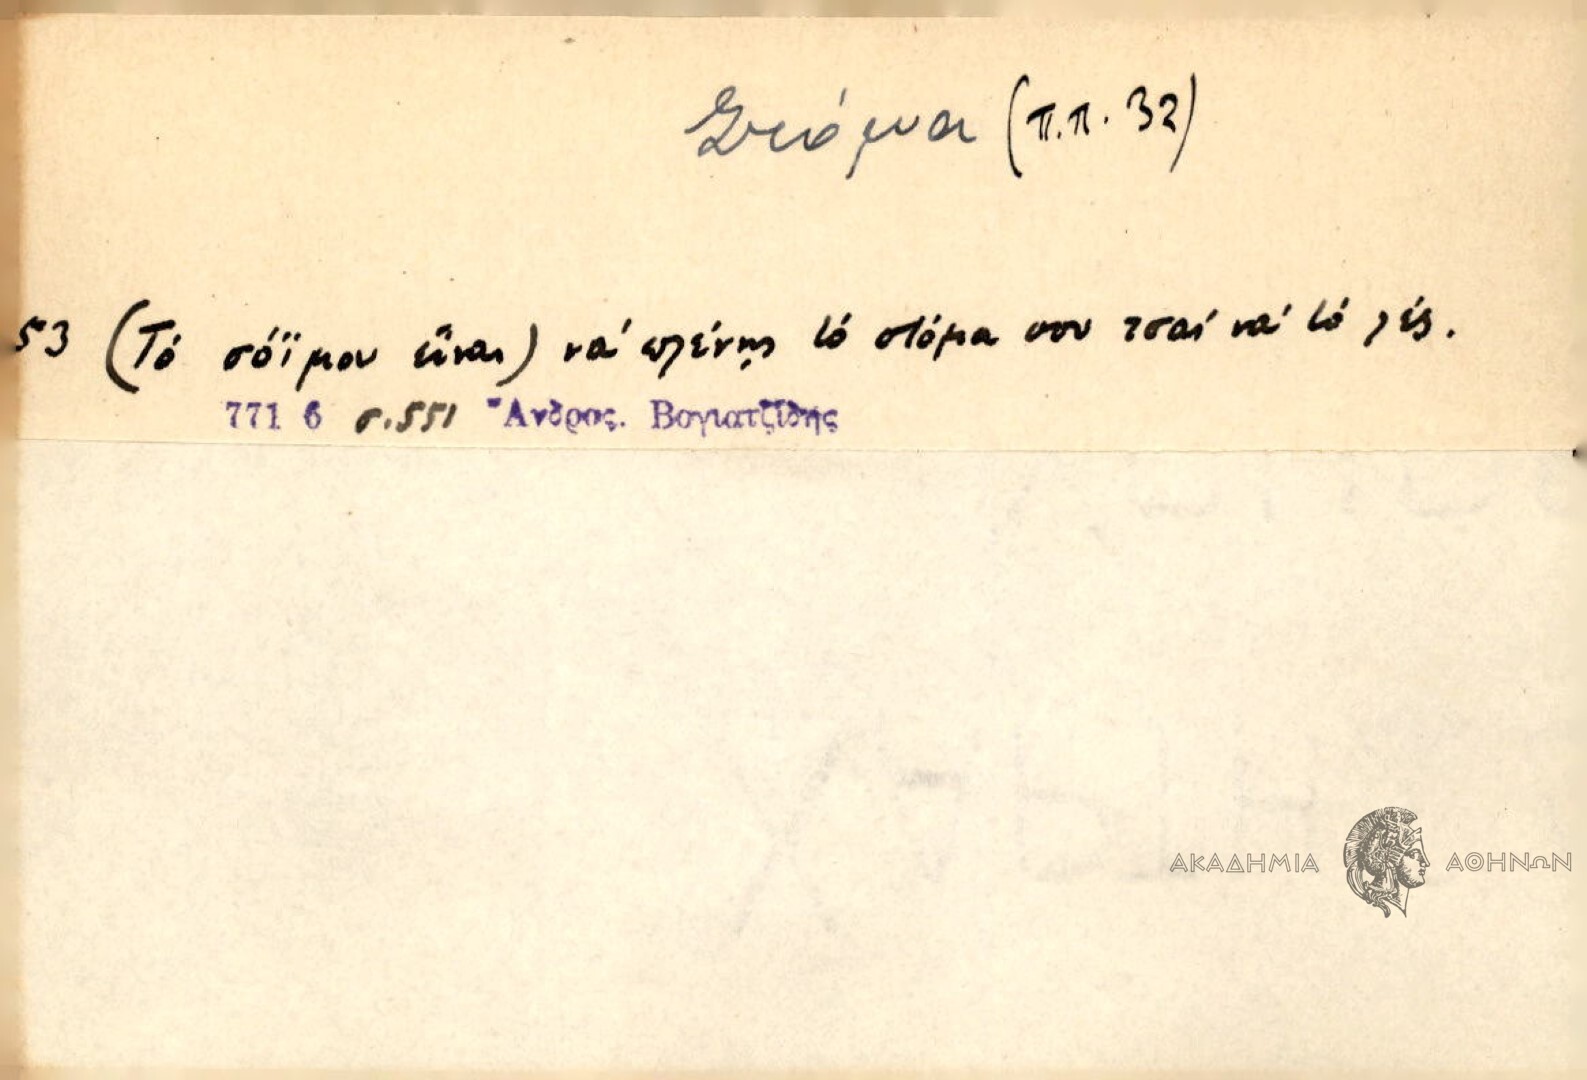 Στόμα (π.π. 32)
53 (Τό σόϊ μου εἶναι) νά πλένῃς τό στόμα σου τσαί νά τό λές.
771 6 σ.551 Ἄνδρος. Βογιατζίδης
ΑΚΑΔΗΜΙΑ ΑΘΗΝΩΝ